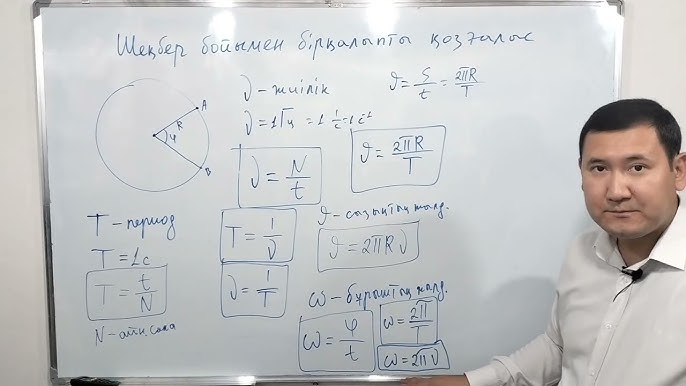 Шеңбер бойымен бірқалыпты қозғалыс
A
R
φ
B
ν – жиілік
ν = 1 Гц = 1 1/c = 1 c⁻¹
ν = N/t
ϑ = S/t = 2πR/T
ϑ = 2πR/T
T – период
T = 1c
T = t/N
N – айн. саны
T = 1/ν
ν = 1/T
ϑ – сызықтық жылд.
ϑ = 2πRν
ω – бұрыштық жылд.
ω = φ/t
ω = 2π/T
ω = 2πν